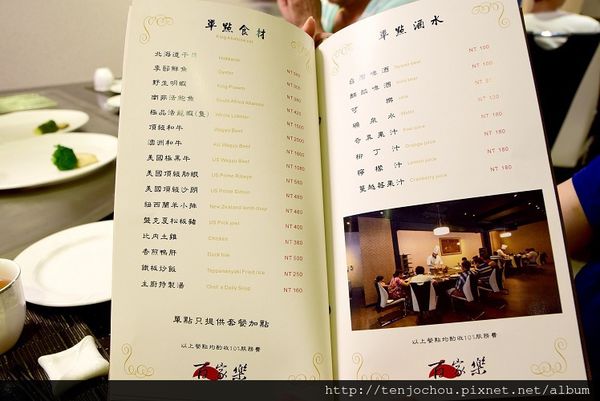 單點食材
北海道干貝 Hokkaido
季節鮮魚 Oyster
野生明蝦 King Prawns
南非活鮑魚 South Africa Abalone
極品活龍蝦(隻) Whole Lobster
頂級和牛 Wagyu Beef
澳洲和牛 AU Wagyu Beef
美國極黑牛 US Wagyu Beef NT 1080
美國頂級肋眼 US Prime Ribeye NT 580
美國頂級沙朗 US Prime Sirloin NT 480
紐西蘭羊小排 New Zealand lamb chop NT 480
盤克夏松板豬 US Pork jowl NT 480
比內土雞 Chicken NT 380
香煎鴨肝 Duck liver NT 500
鐵板炒飯 Teppanyaki Fried rice NT 250
主廚特製湯 Chef's Daily Soup NT 160
單點只提供套餐加點
以上餐點均酌收10%服務費
百家樂
單點酒水
台灣啤酒 Taiwan beer NT 100
NT 100
可樂
礦泉水 Water NT 120
奇異果汁 Kiwi juice NT 180
柳丁汁 Orange juice NT 180
檸檬汁 Lemon juice NT 180
蔓越莓果汁 Cranberry juice NT 180
以上餐點均酌收10%服務費
百家樂
http://tenjochou.pixnet.net/album